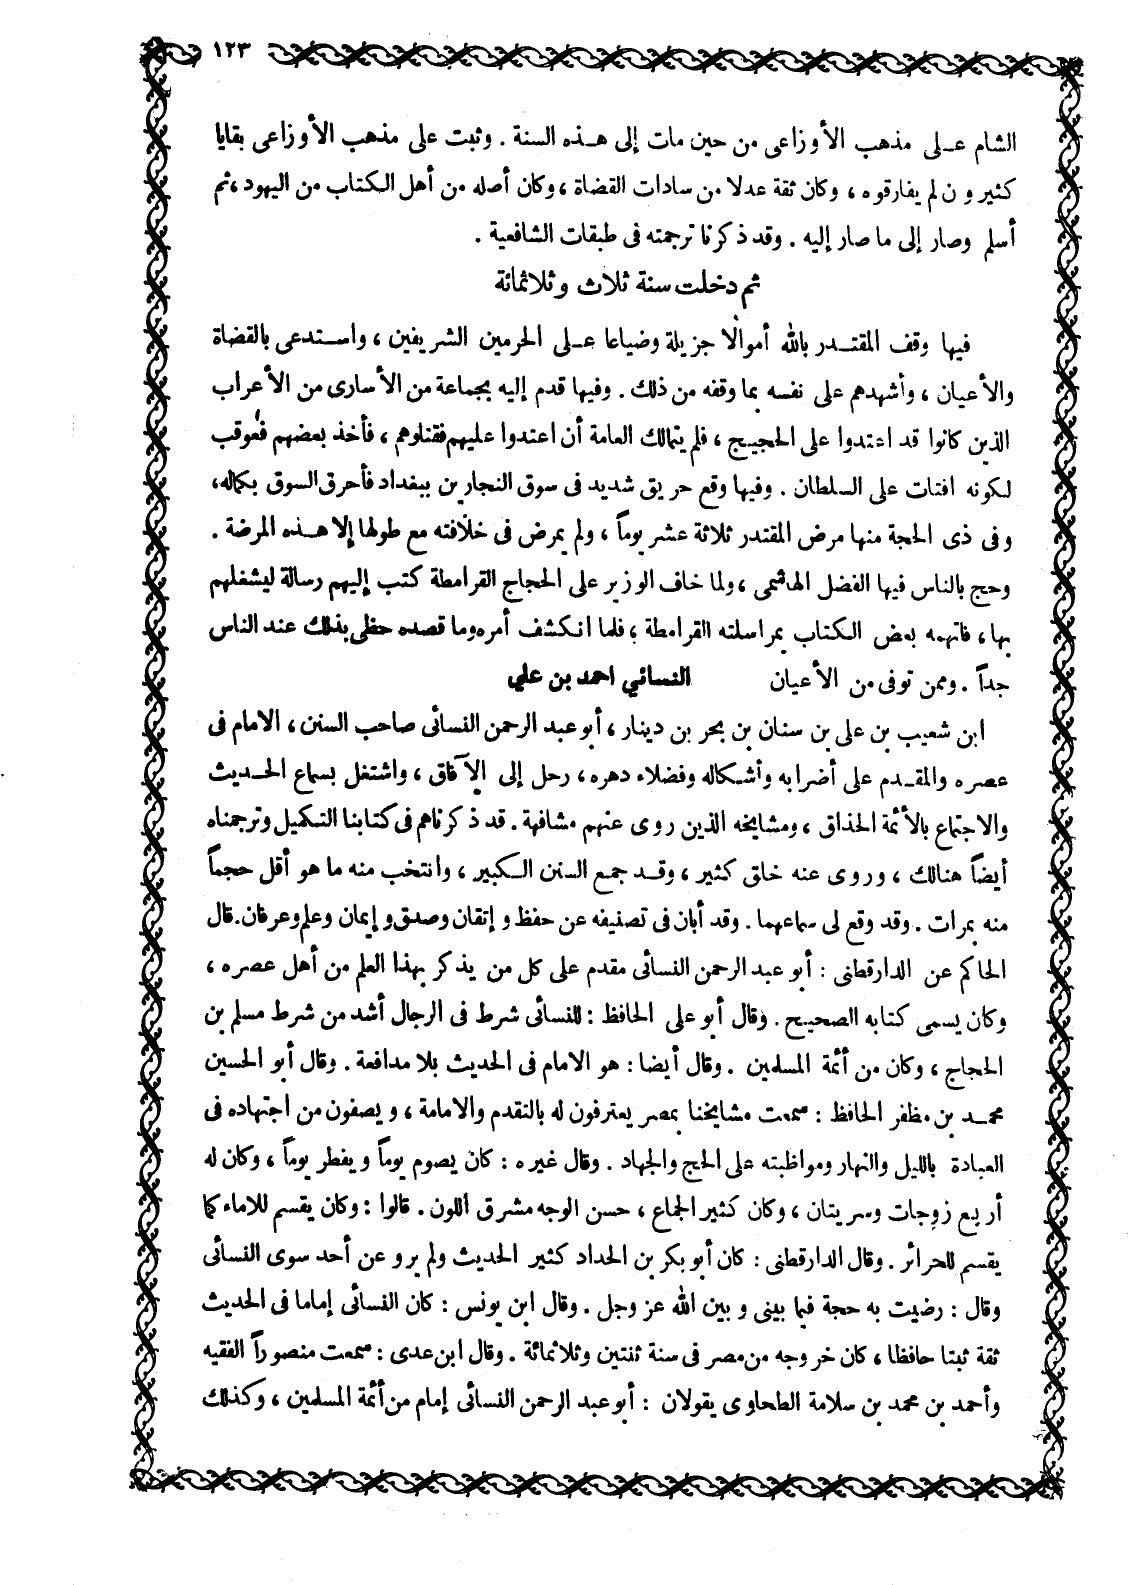 ١٢٣
الشام على مذهب الأوزاعى من حين مات إلى هذه السنة . وثبت على مذهب الأوزاعى بقايا
كثيرون لم يفارقوه ، وكان ثقة عدلا من سادات القضاة ، وكان أصله من أهل الكتاب من اليهود ، ثم
أسلم وصار إلى ما صار إليه . وقد ذكرنا ترجمته فى طبقات الشافعية .
ثم دخلت سنة ثلاث وثلاثمائة
فيها وقف المقتدر بالله أموالا جزيلة وضياعا على الحرمين الشريفين ، واستدعى بالقضاة
والأعيان ، وأشهدهم على نفسه بما وقفه من ذلك . وفيها قدم إليه بجماعة من الأسارى من الأعراب
الذين كانوا قد اعتدوا على الحجيج ، فلم يتمالك العامة أن اعتدوا عليهم فقتلوهم ، فأخذ بعضهم فعوقب
لكونه افتات على السلطان . وفيها وقع حريق شديد فى سوق النجارين ببغداد فأحرق السوق بكماله ،
وفى ذى الحجة منها مرض المقتدر ثلاثة عشر يوماً ، ولم يمرض فى خلافته مع طولها إلا هذه المرضة .
وحج بالناس فيها الفضل الهاشمى ، ولما خاف الوزير على الحجاج القرامطة كتب إليهم رسالة ليشغلهم
بها ، فاتهمه بعض الكتاب بمراسلته القرامطة ، فلما انكشف أمره وما قصده حظى بذلك عند الناس
جداً . وممن توفى من الأعيان النسائي احمد بن علي
ابن شعيب بن على بن سنان بن بحر بن دينار ، أبو عبد الرحمن النسائى صاحب السنن ، الامام فى
عصره والمقدم على أضرابه وأشكاله وفضلاء دهره ، رحل إلى الآفاق ، واشتغل بسماع الحديث
والاجتماع بالأئمة الحذاق ، ومشايخه الذين روى عنهم مشافهة . قد ذكرناهم فى كتابنا التكميل وترجمناه
أيضاً هنالك ، وروى عنه خلق كثير ، وقد جمع السنن الكبير ، وانتخب منه ما هو أقل حجماً
منه بمرات . وقد وقع لى سماعهما . وقد أبان فى تصنيفه عن حفظ وإتقان وصدق وإيمان وعلم وعرفان . قال
الحاكم عن الدارقطنى : أبو عبد الرحمن النسائى مقدم على كل من يذكر بهذا العلم من أهل عصره ،
وكان يسمى كتابه الصحيح . وقال أبو على الحافظ : للنسائى شرط فى الرجال أشد من شرط مسلم بن
الحجاج ، وكان من أئمة المسلمين . وقال أيضا : هو الامام فى الحديث بلا مدافعة . وقال أبو الحسين
محمد بن مظفر الحافظ : سمعت مشايخنا بمصر يعترفون له بالتقدم والامامة ، ويصفون من اجتهاده فى
العبادة بالليل والنهار ومواظبته على الحج والجهاد . وقال غيره : كان يصوم يوماً ويفطر يوماً ، وكان له
أربع زوجات وسريتان ، وكان كثير الجماع ، حسن الوجه مشرق اللون . قالوا : وكان يقسم للاماء كما
يقسم للحرائر . وقال الدارقطنى : كان أبو بكر بن الحداد كثير الحديث ولم يرو عن أحد سوى النسائى
وقال : رضيت به حجة فيما بينى وبين الله عز وجل . وقال ابن يونس : كان النسائى إماما فى الحديث
ثقة ثبتا حافظا ، كان خروجه من مصر فى سنة ثنتين وثلاثمائة . وقال ابن عدى : سمعت منصوراً الفقيه
وأحمد بن محمد بن سلامة الطحاوى يقولان : أبو عبد الرحمن النسائى إمام من أئمة المسلمين ، وكذلك